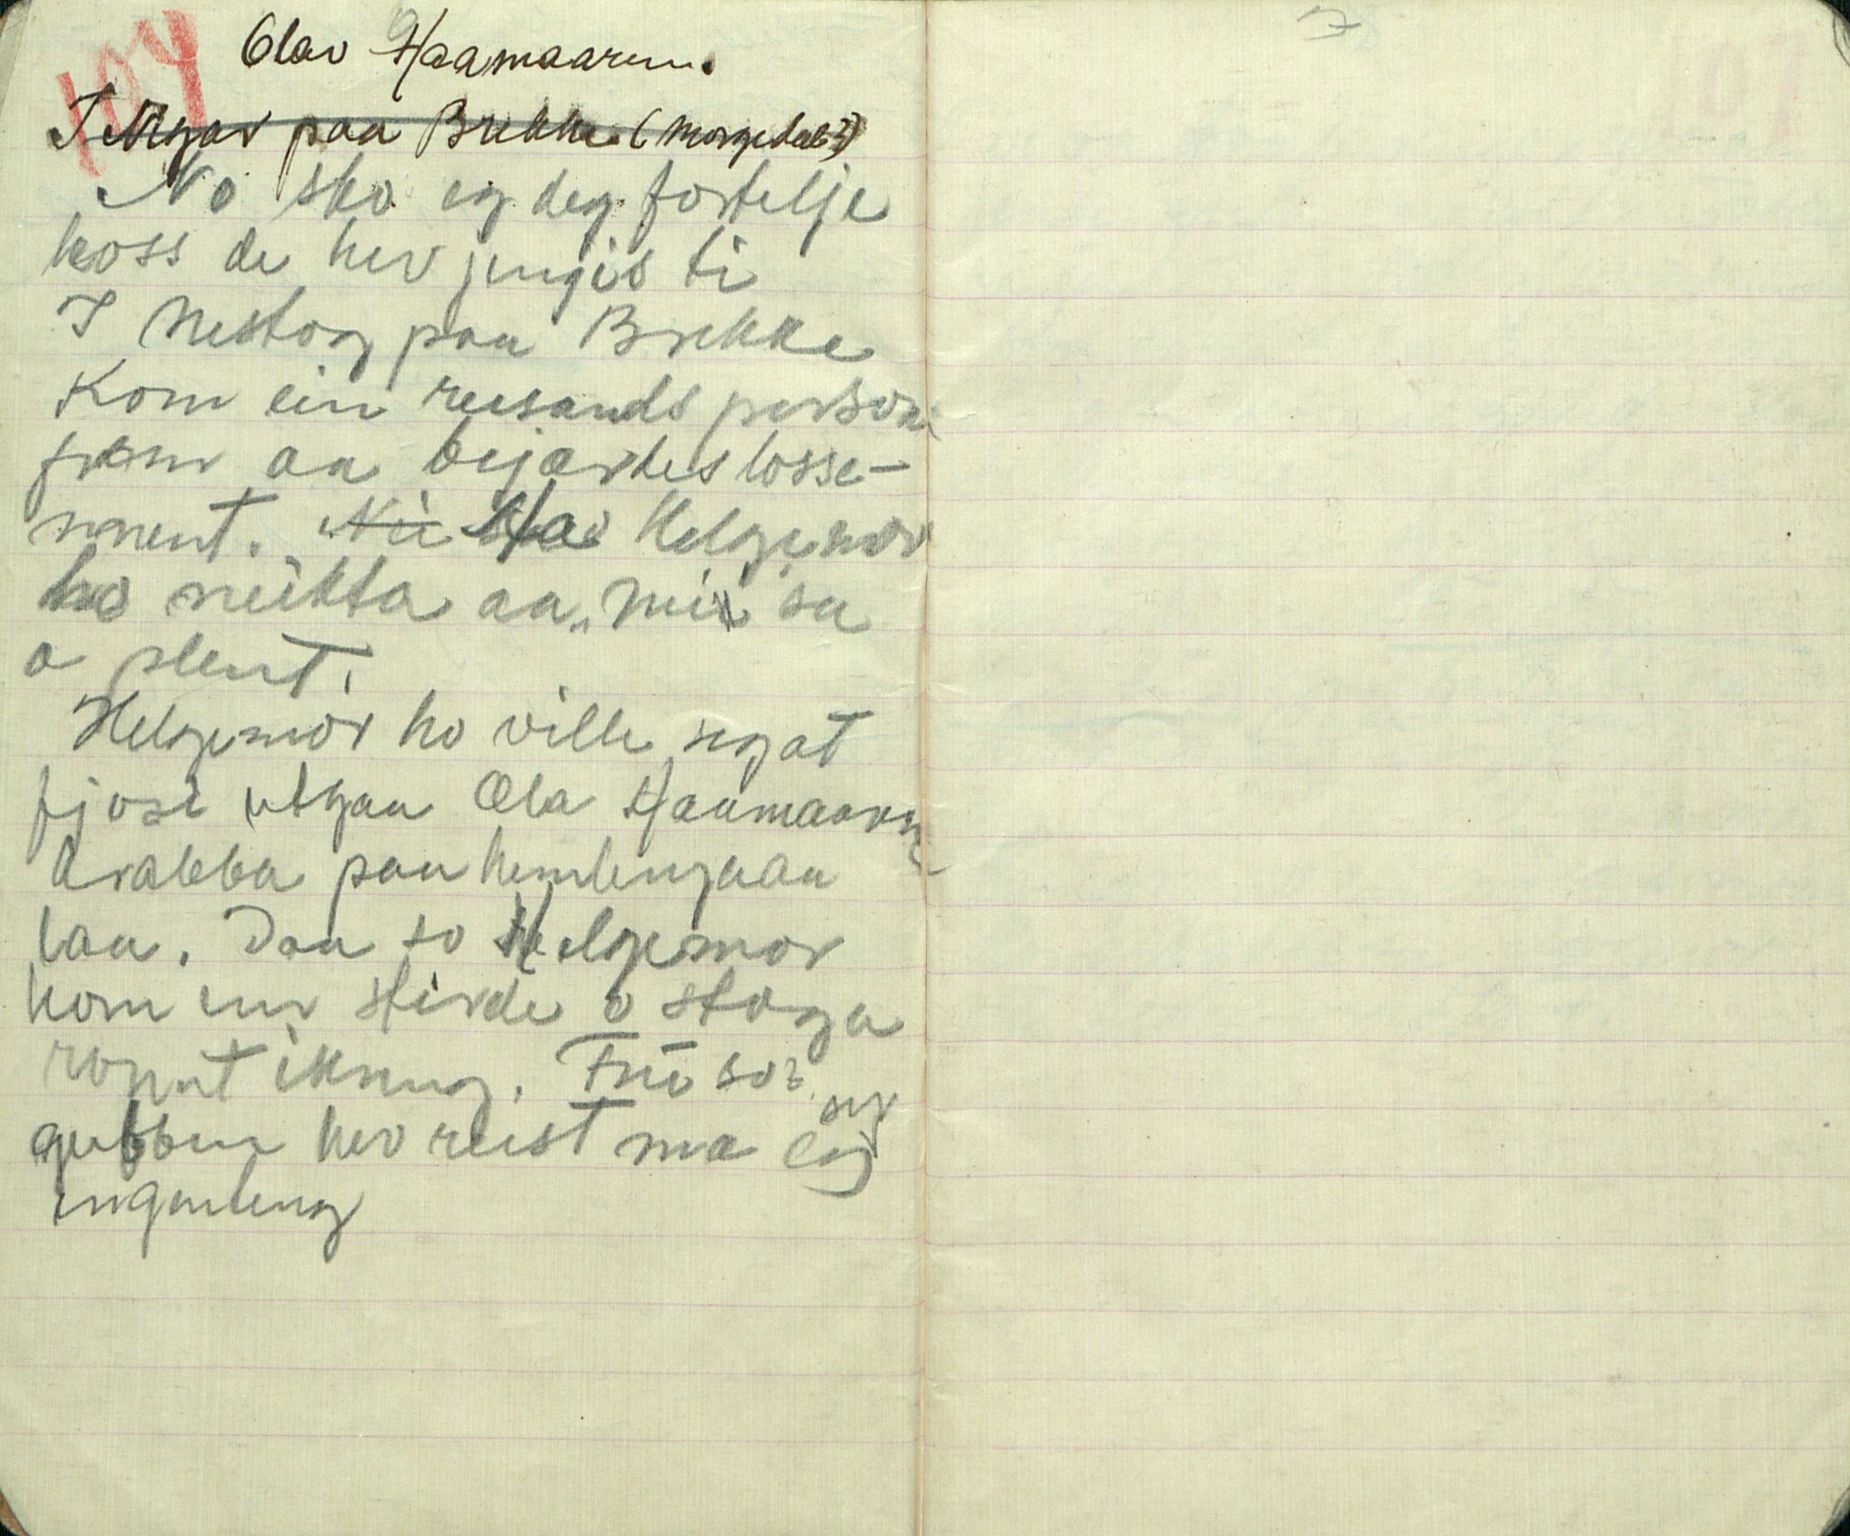 107
Olav Haamaaren.
I Nigar paa Brekke (Morgedal?)
No sko eg deg fortelje
koss de hev jengis ti
I Nestog paa Brekke
Kom ein reisands person
fram aa bejærtes losse-
ment. Nei Helgemor
ho neikta aa „Nei" sa
o slent.
Helgemor ho ville segat
fjose utgaa Ola Haamaaren
drabba paa hemlengaaa
laa. Daa so Helgemor
kom inn stirde o stoga
ropat ikring. Fni so?
gubben hev reist ma seg
ingenleng
7